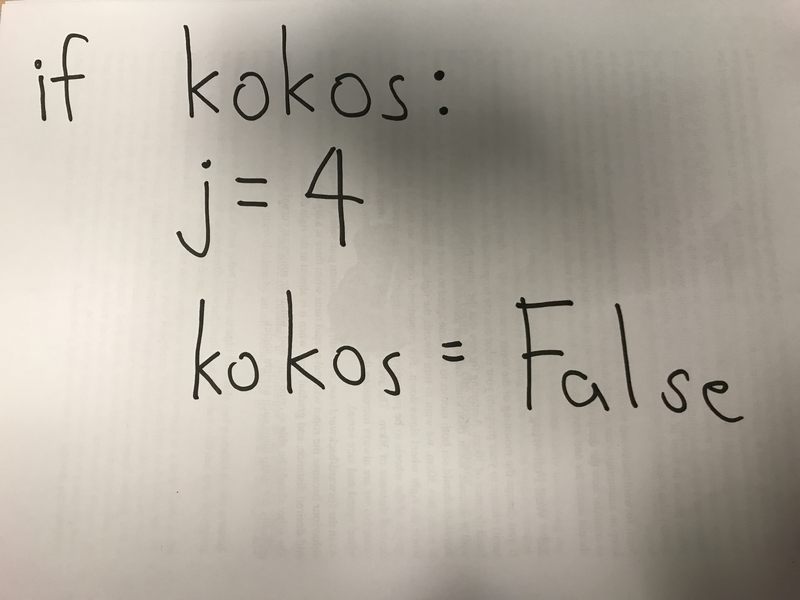 if kokos:
    j = 4
    kokos = False